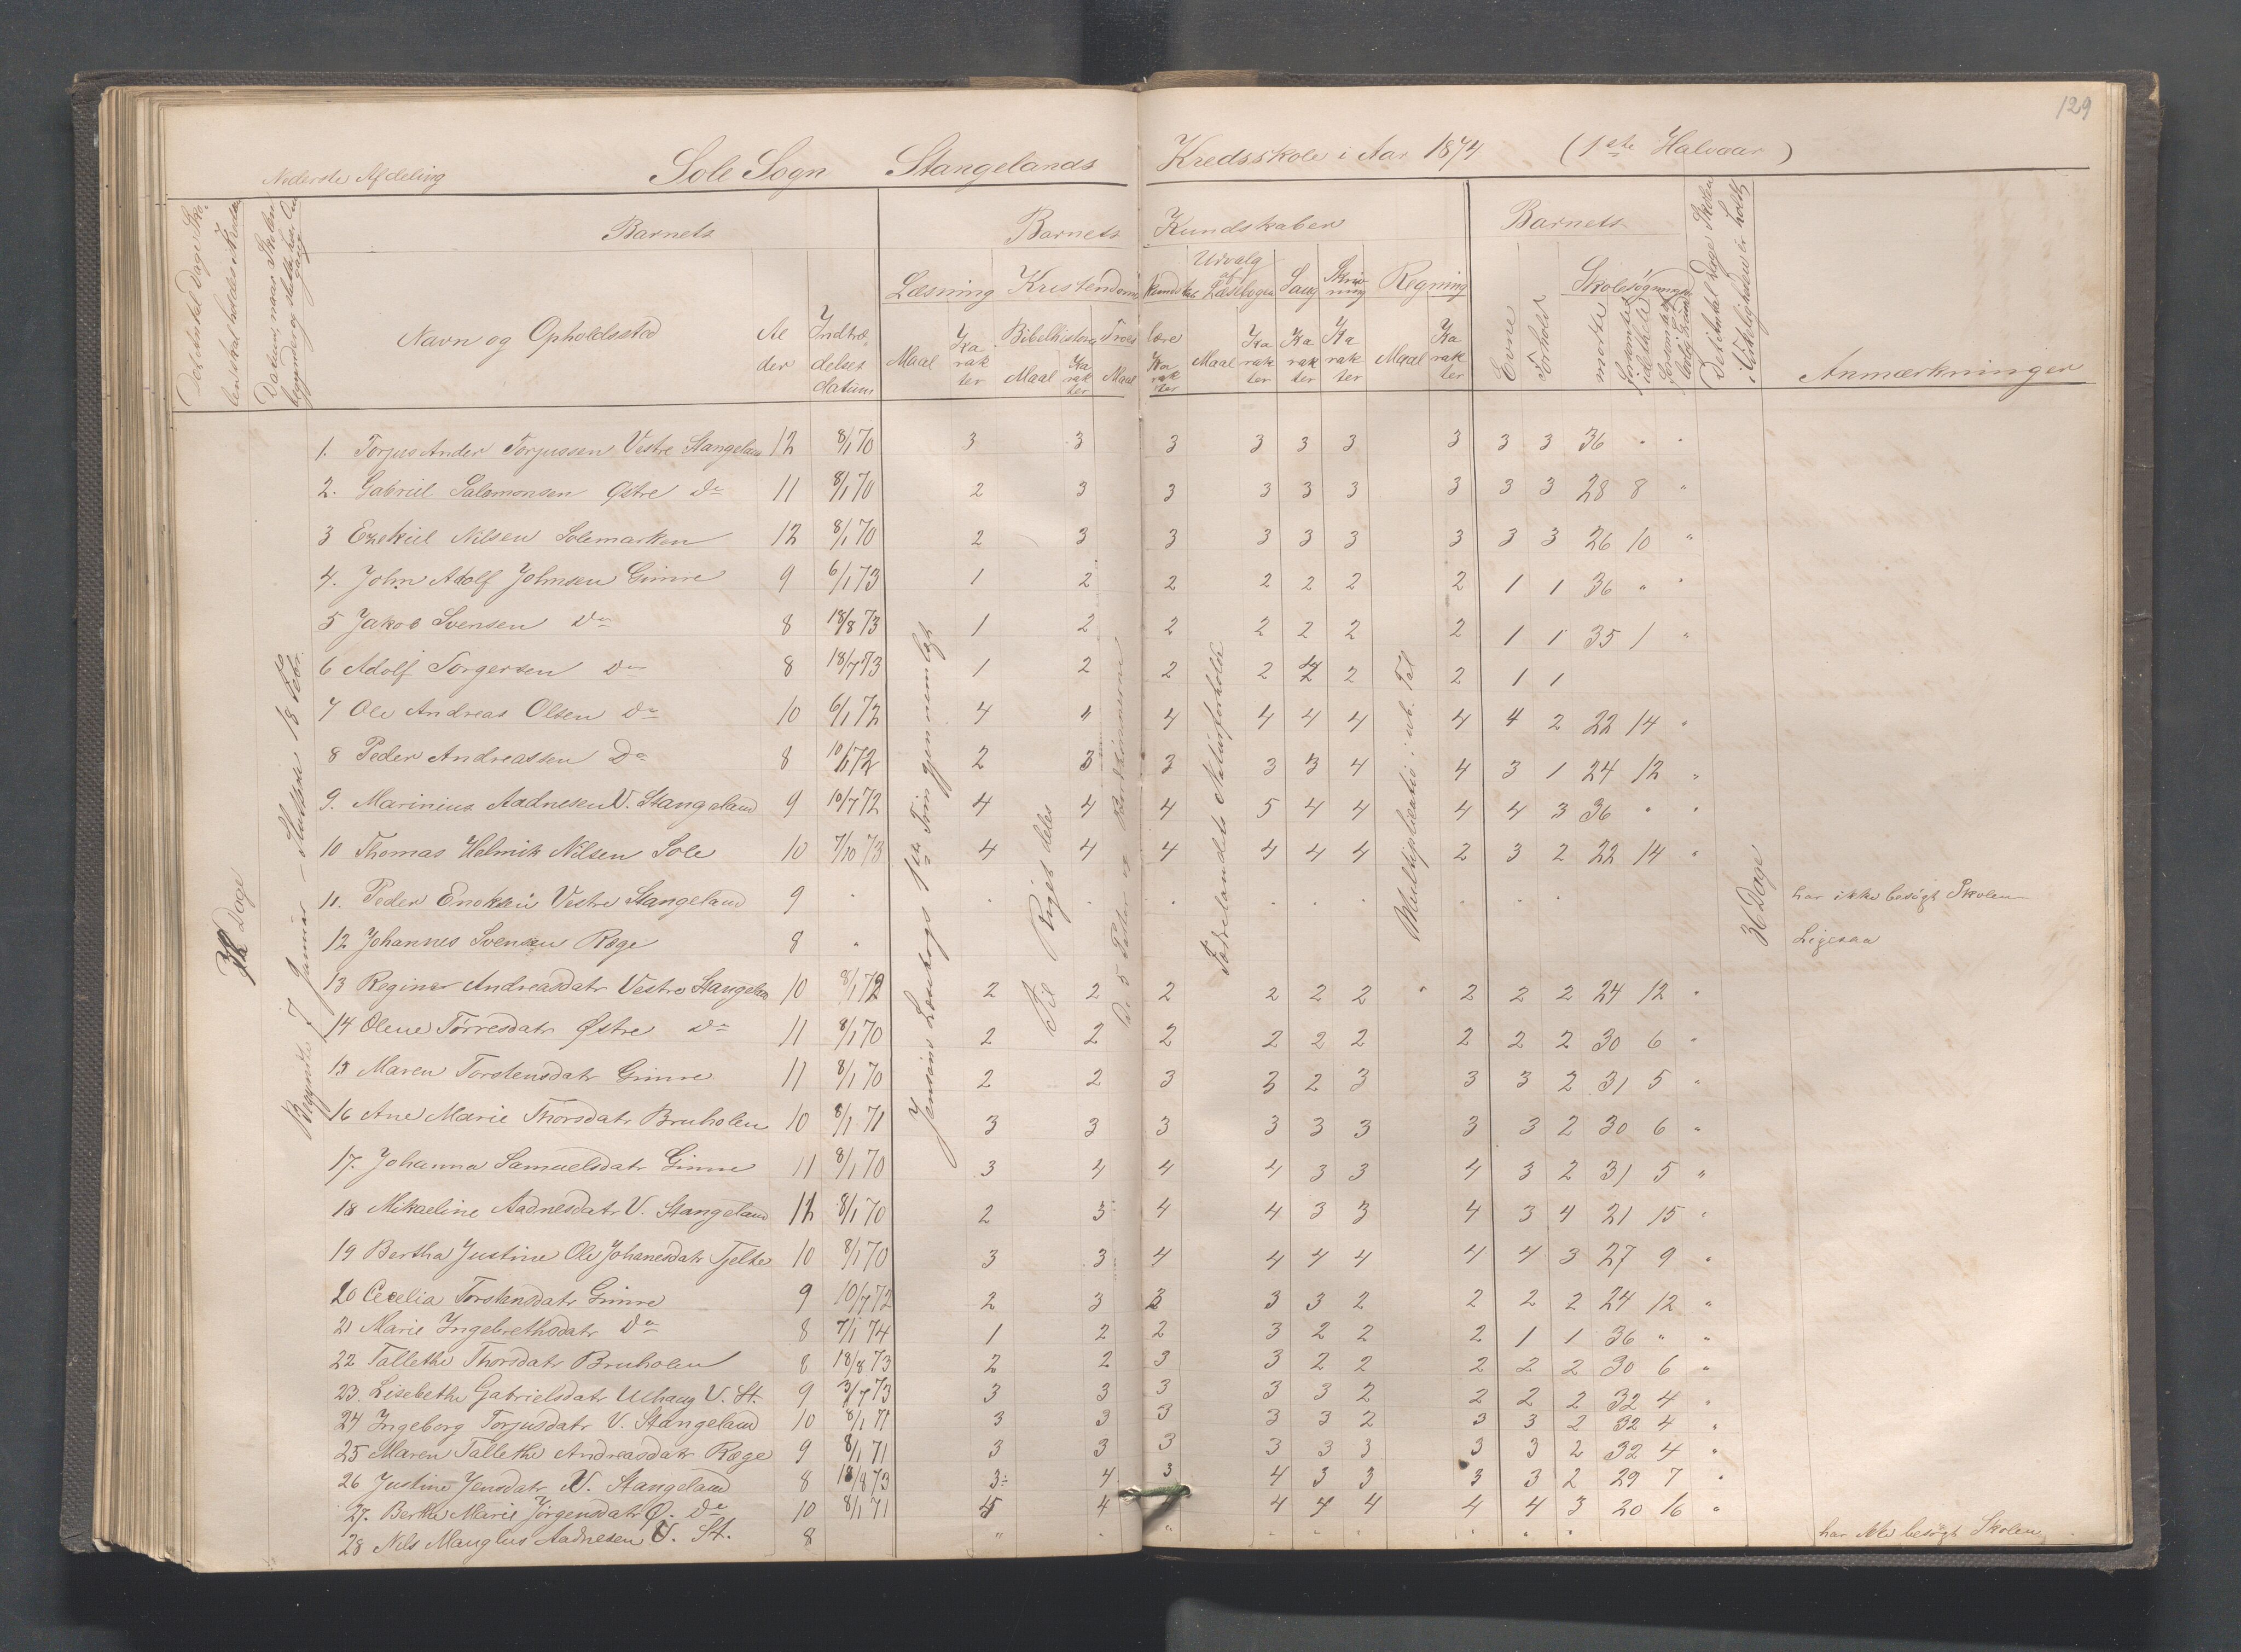 129
Nederste Afdeling Sole Sogn Stangelands Kredsskole i Aar 1874 (1ste Halvaar)
Barnets Barnets Kundskaber Barnets
Navn og Opholdssted Alder Indtrædelsesdatum
Læsning Kristendoms kundskab Udvalg af Læsebogen Sang Skrivning Regning Evne Forhold Skolesøgning
Bibelhistorie Troeslære
Maal Karakter Maal Karakter Maal Karakter Maal Karakter Karakter Karakter Maal Karakter mødte forsømte
Anmærkninger
36 Dage
Begyndte 7 Januar – Sluttede 18 Febr.
Jensens Læsebogs 1ste Trin gjennemlagt
Til Riget deles
De 5 Parter og
Fædrelandets Naturforholde
Multiplikation i ub. Tal
36 Dage
1. Torjus Ander Torjussen Vestre Stangeland 12 8/1 70 3 3 3 3 3 3 3 3 3 36 " "
2. Gabriel Salomonsen Østre Do 11 8/1 70 2 3 3 3 3 3 3 3 3 28 8 "
3 Ezekiel Nilsen Solemarken 12 8/1 70 2 3 3 3 3 3 3 3 3 26 10 "
4. John Adolf Johnsen Gimre 9 6/1 73 1 2 2 2 2 2 2 1 1 36 " "
5 Jakob Svensen Do 8 18/8 73 1 2 2 2 2 2 2 1 1 35 1 "
6 Adolf Torgersen Do 8 18/7 73 1 2 2 2 2 2 2 1 1
7 Ole Andreas Olsen Do 10 6/1 72 4 4 4 4 4 4 4 4 2 22 14 "
8 Peder Andreassen Do 8 10/1 72 2 3 3 3 3 4 4 3 1 24 12 "
9. Marinius Aadnesen V. Stangeland 9 10/7 72 4 4 4 5 4 4 4 4 3 36 " "
10 Thomas Helmik Nilsen Sole 10 7/10 73 4 4 4 4 4 4 2 3 2 22 14 "
11. Peder Enoksen Vestre Stangeland 9 . . . . . . . . . . har ikke besøgt Skolen
12 Johannes Svensen Ræge 8 " Ligesaa
13 Regine Andreasdatr Vestre Stangeland 10 8/1 72 2 2 2 2 2 2 " 2 2 2 24 12 "
14 Olene Tørresdatr Østre Do 11 8/1 70 2 2 2 2 2 2 2 2 2 30 6 "
15 Maren Torstensdatr Gimre 11 8/1 70 2 2 3 3 2 3 3 3 2 31 5 "
16 Ane Marie Thorsdatr Bruholen 10 8/1 71 3 3 3 3 3 3 3 3 2 30 6 "
17. Johanna Samuelsdatr Gimre 11 8/1 70 3 4 4 4 3 3 4 3 2 31 5 "
18 Mikaeline Aadnesdatr V. Stangeland 11 8/1 70 2 3 4 4 3 3 4 3 4 21 15 "
19 Bertha Justine Ole Johanesdatr Tjelte 10 8/1 70 3 3 4 4 4 4 4 4 3 27 9 "
20 Cecelia Torstensdatr Gimre 9 10/7 72 2 3 3 3 3 2 2 2 2 24 12 "
21 Marie Ingebrethsdatr Do 8 7/1 74 1 2 2 3 2 2 2 1 1 36 " "
22 Tallethe Thorsdatr Bruholen 8 18/8 73 2 2 3 3 2 2 2 2 2 30 6 "
23. Lisebethe Gabrielsdatr Uhaug V. St. 9 3/7 73 3 3 3 3 3 2 2 2 2 32 4 "
24 Ingeborg Torjusdatr V. Stangeland 10 8/1 71 3 3 3 3 3 2 3 3 2 32 4 "
25 Maren Tallethe Andreasdatr Ræge 9 8/1 71 3 3 3 3 3 3 3 3 2 32 4 "
26 Justine Jensdatr V. Stangeland 8 18/8 73 3 4 3 4 3 3 3 3 2 29 7 "
27. Berthe Marie Jörgensdatr Ø. Do 10 8/1 71 4 4 4 4 4 4 4 3 20 16 "
28 Nils Mauglus Aadnesen V. St. 8 " . " . . . . . . har ikke besøgt Skolen